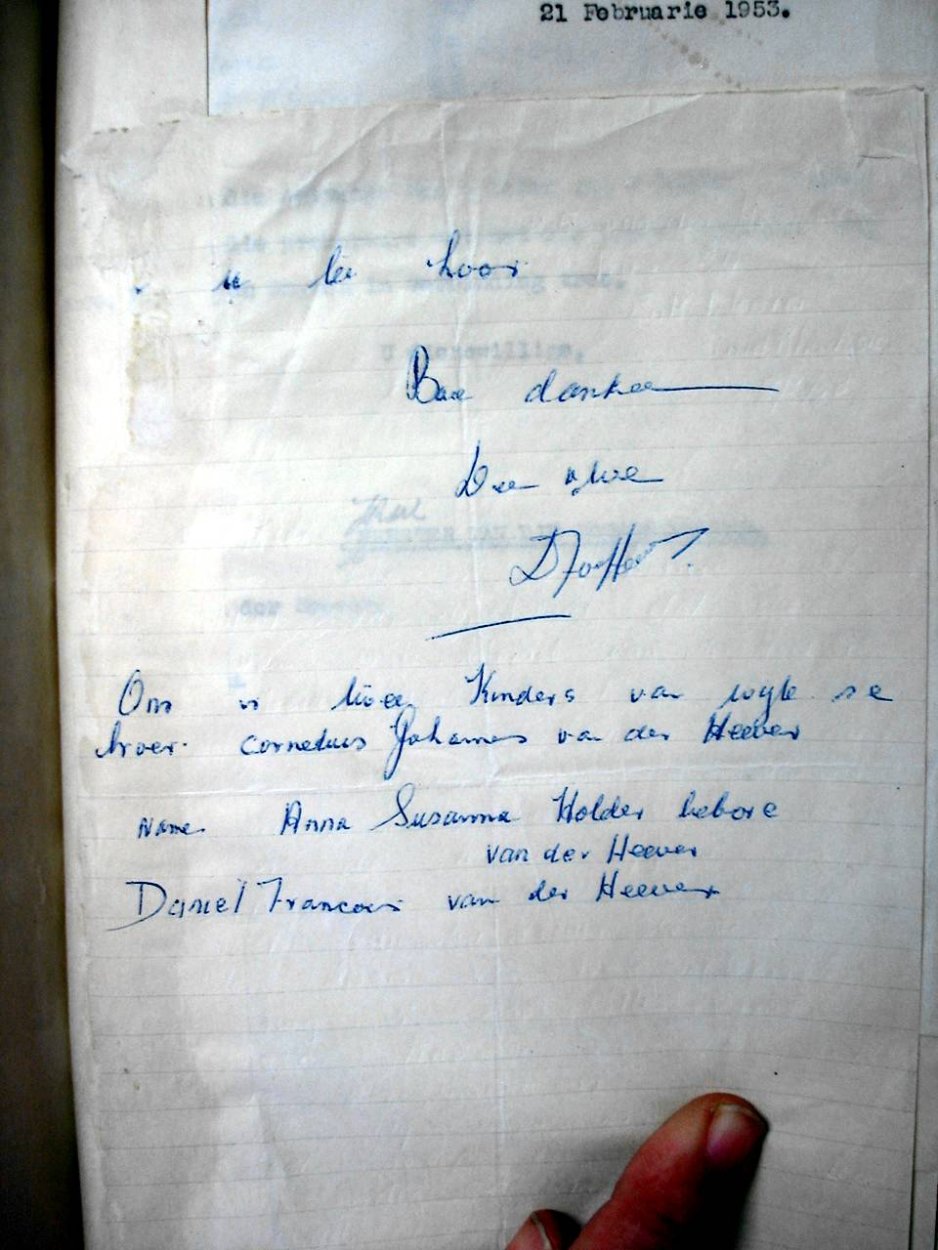 21 Februarie 1953.
u te hoor
Baie dankee
Die uwe
Ons is twee Kinders van wyle se
broer. Cornelius Johannes van der Heever
Name Anna Susanna Holder gebore
van der Heever
Daniel Francois van der Heever